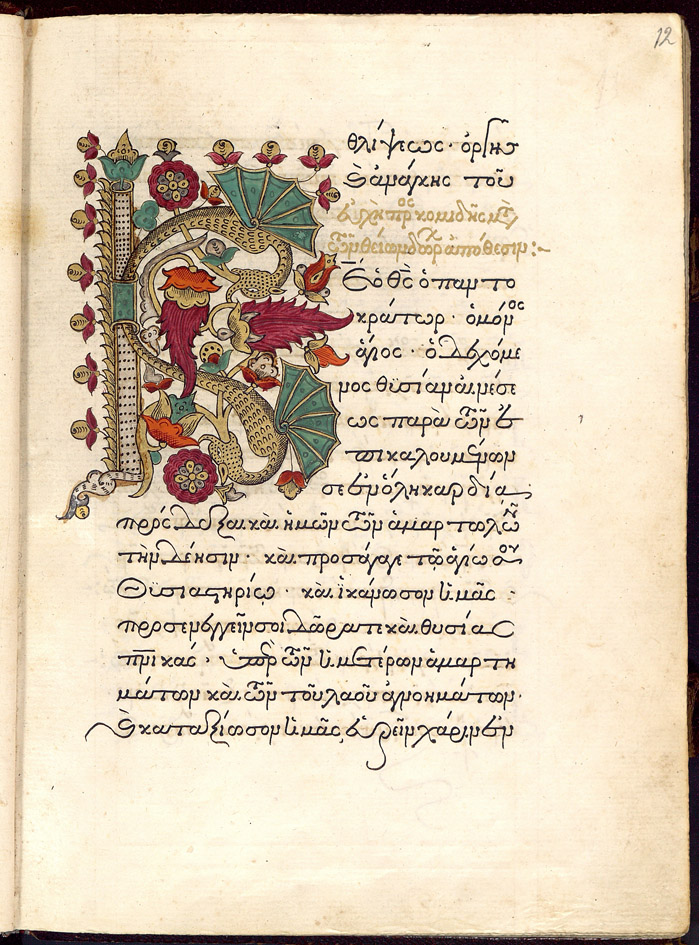 12
θλίψεως· ὀργῆς
καὶ ἀνάγκης τοῦ
εὐχὴ προσκομιδῆς μετὰ τὴν
τῶν θείων δώρων ἀπόθεσιν:~
Κε ὁ θς ὁ παντο
κράτωρ· ὁ μόνος
ἅγιος· ὁ δεχόμε
νος θυσίαν αἰνέσε
ως παρὰ τῶν ἐ
πικαλουμένων
σε ἐν ὅλη καρδία,
πρόσδεξαι καὶ ἡμῶν τῶν ἁμαρτωλῶν
τὴν δέησιν· καὶ προσάγαγε τῶ ἁγίω σου
θυσιαστηρίω· καὶ ἱκάνωσον ἡμᾶς
προσενεγκεῖν σοι δῶρα τε καὶ θυσίας
πνικάς· ὑπὲρ τῶν ἡμετέρων ἁμαρτη
μάτων καὶ τῶν τοῦ λαοῦ ἀγνοημάτων·
καὶ καταξίωσον ἡμᾶς, εὑρεῖν χάριν ἐν